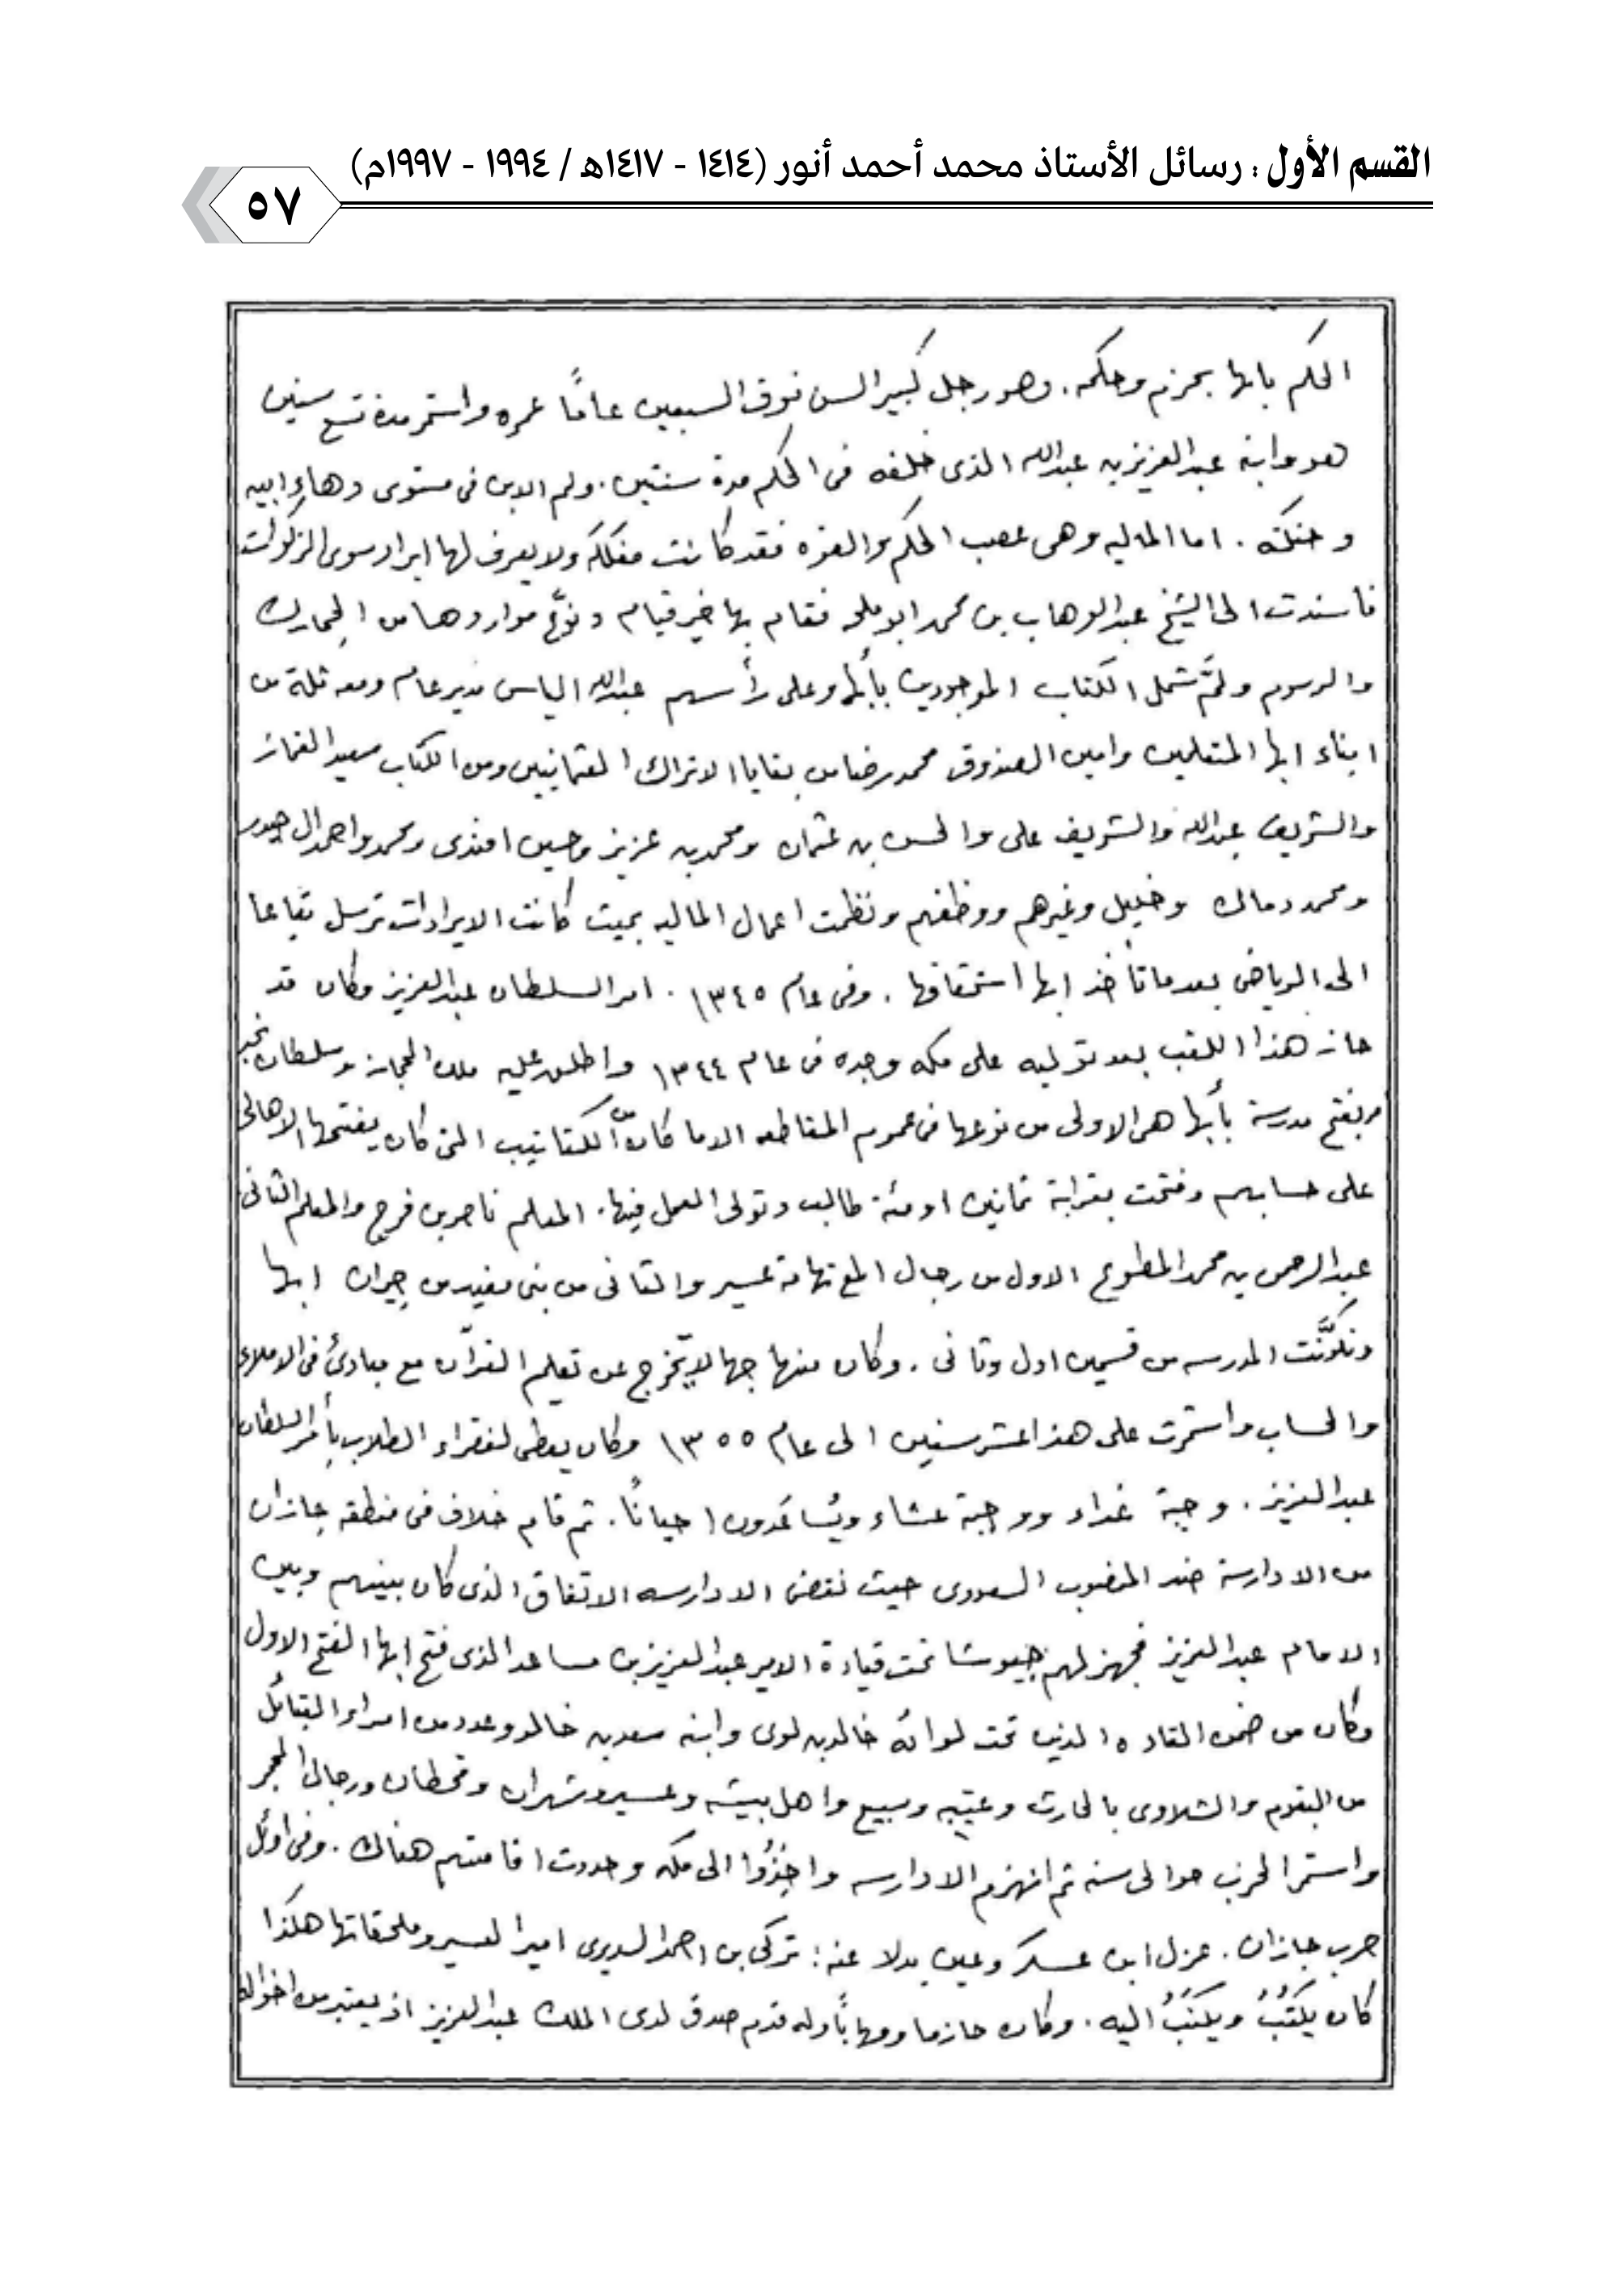 القسم الأول : رسائل الأستاذ محمد أحمد أنور (١٤١٤ - ١٤١٧هـ / ١٩٩٤ - ١٩٩٧م)
٥٧
الحكم بابها بحزم وحكمه . وهو رجل كبير السن فوق السبعين عامًا عمره واستمر مدة تسع سنين
هو وابنه عبدالعزيز بن عبدالله الذى خلفه فى الحكم مدة سنتين . ولم الابن فى مستوى دهاء ابيه
وحنكته . اما الماليه وهى عصب الحكم والقوه فقد كانت مفككه ولا يعرف لها ايراد سوى الزكوات
فأسندت الى الشيخ عبدالوهاب بن محمد ابو ملحه فقام بها خير قيام ونوَّع مواردها من الجمارك
والرسوم ولمَّ شمل الكتاب الموجودين بأبها وعلى رأسهم عبدالله الياس مدير عام ومعه ثلة من
ابناء ابها المتعلمين وامين الصندوق محمد رضا من بقايا الاتراك العثمانيين ومن الكتاب سعيد الغماز
والشريف عبدالله والشريف على والحسن بن عثمان ومحمد بن عزيز وحسين افندى ومحمد واحمد ال
ومحمد دماك وخليل وغيرهم ووظفهم ونظمت اعمال الماليه بحيث كانت الايرادات ترسل تباعا
الى الرياض بعدما تأخذ ابها استحقاقها . وفى عام ١٣٤٥ . امر السلطان عبدالعزيز وكان قد
حاز هذا اللقب بعد توليه على مكه وجده فى عام ١٣٤٤ واطلق عليه ملك الحجاز وسلطان نجد
امر بفتح مدرسة بأبها هى الاولى من نوعها فى عموم المقاطعه الا ما كان من الكتاتيب التى كان يفتحها الاهالى
على حسابهم وفتحت بقرابة ثمانين او مئة طالب وتولى العمل فيها . المعلم ناصر بن فرج والمعلم الثانى
عبدالرحمن بن محمد المطوع الاول من رجال المع تهامة عسير والثانى من بنى مغيد من جيران ابها
وتكوَّنت المدرسه من قسمين اول وثانى . وكان منهاجها لا يخرج عن تعليم القرآن مع مبادئ فى الاملاء
والحساب واستمرت على هذا عشر سنين الى عام ١٣٥٥ وكان يعطى لفقراء الطلاب بأمر السلطان
عبدالعزيز . وجبة غداء ووجبة عشاء ويُساعَدون احيانًا . ثم قام خلاف فى منطقه جازان
من الادارسة ضد المندوب السعودى حيث نقض الادارسه الاتفاق الذى كان بينهم وبين
الامام عبدالعزيز فجهز لهم جيوشا تحت قيادة الامير عبدالعزيز بن مساعد الذى فتح ابها الفتح الاول
وكان من ضمن القاده الذين تحت لوائه خالد بن لوى وابنه سعد بن خالد وعدد من امراء القبائل
من البقوم والشلاوى بالحارث وعتيبه وسبيع واهل بيشه وعسير وشهران وقحطان ورجال الحجر
واستمر الحرب حوالى سنه ثم انهزم الادارسه واخِذُوا الى مكه وحددت اقامتهم هناك . وفى اوئل
حرب جازان . عزل ابن عسكر وعين بدلا عنه : تركى بن احمد السديرى اميرا لعسير وملحقاتها هكذا
كان يكتُبُ ويكتَبُ اليه . وكان حازما ومهابًا وله قدم صدق لدى الملك عبدالعزيز اذ يعتبر من اخواله